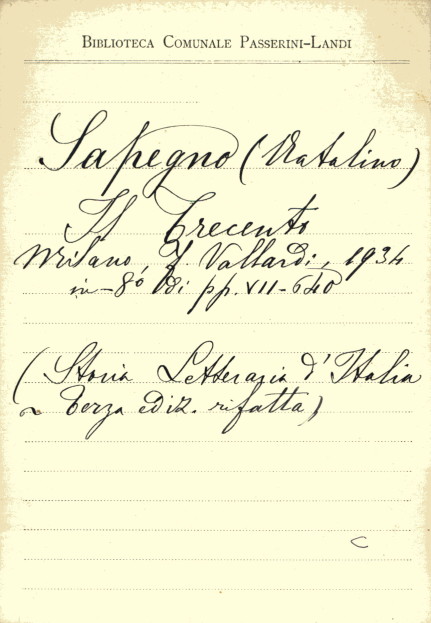 BIBLIOTECA COMUNALE PASSERINI-LANDI
Sapegno (Natalino)
Il Trecento
Milano F. Vallardi, 1934
in-8° di pp. VII-640
(Storia Letteraria d'Italia
~ Terza ediz. rifatta)
C